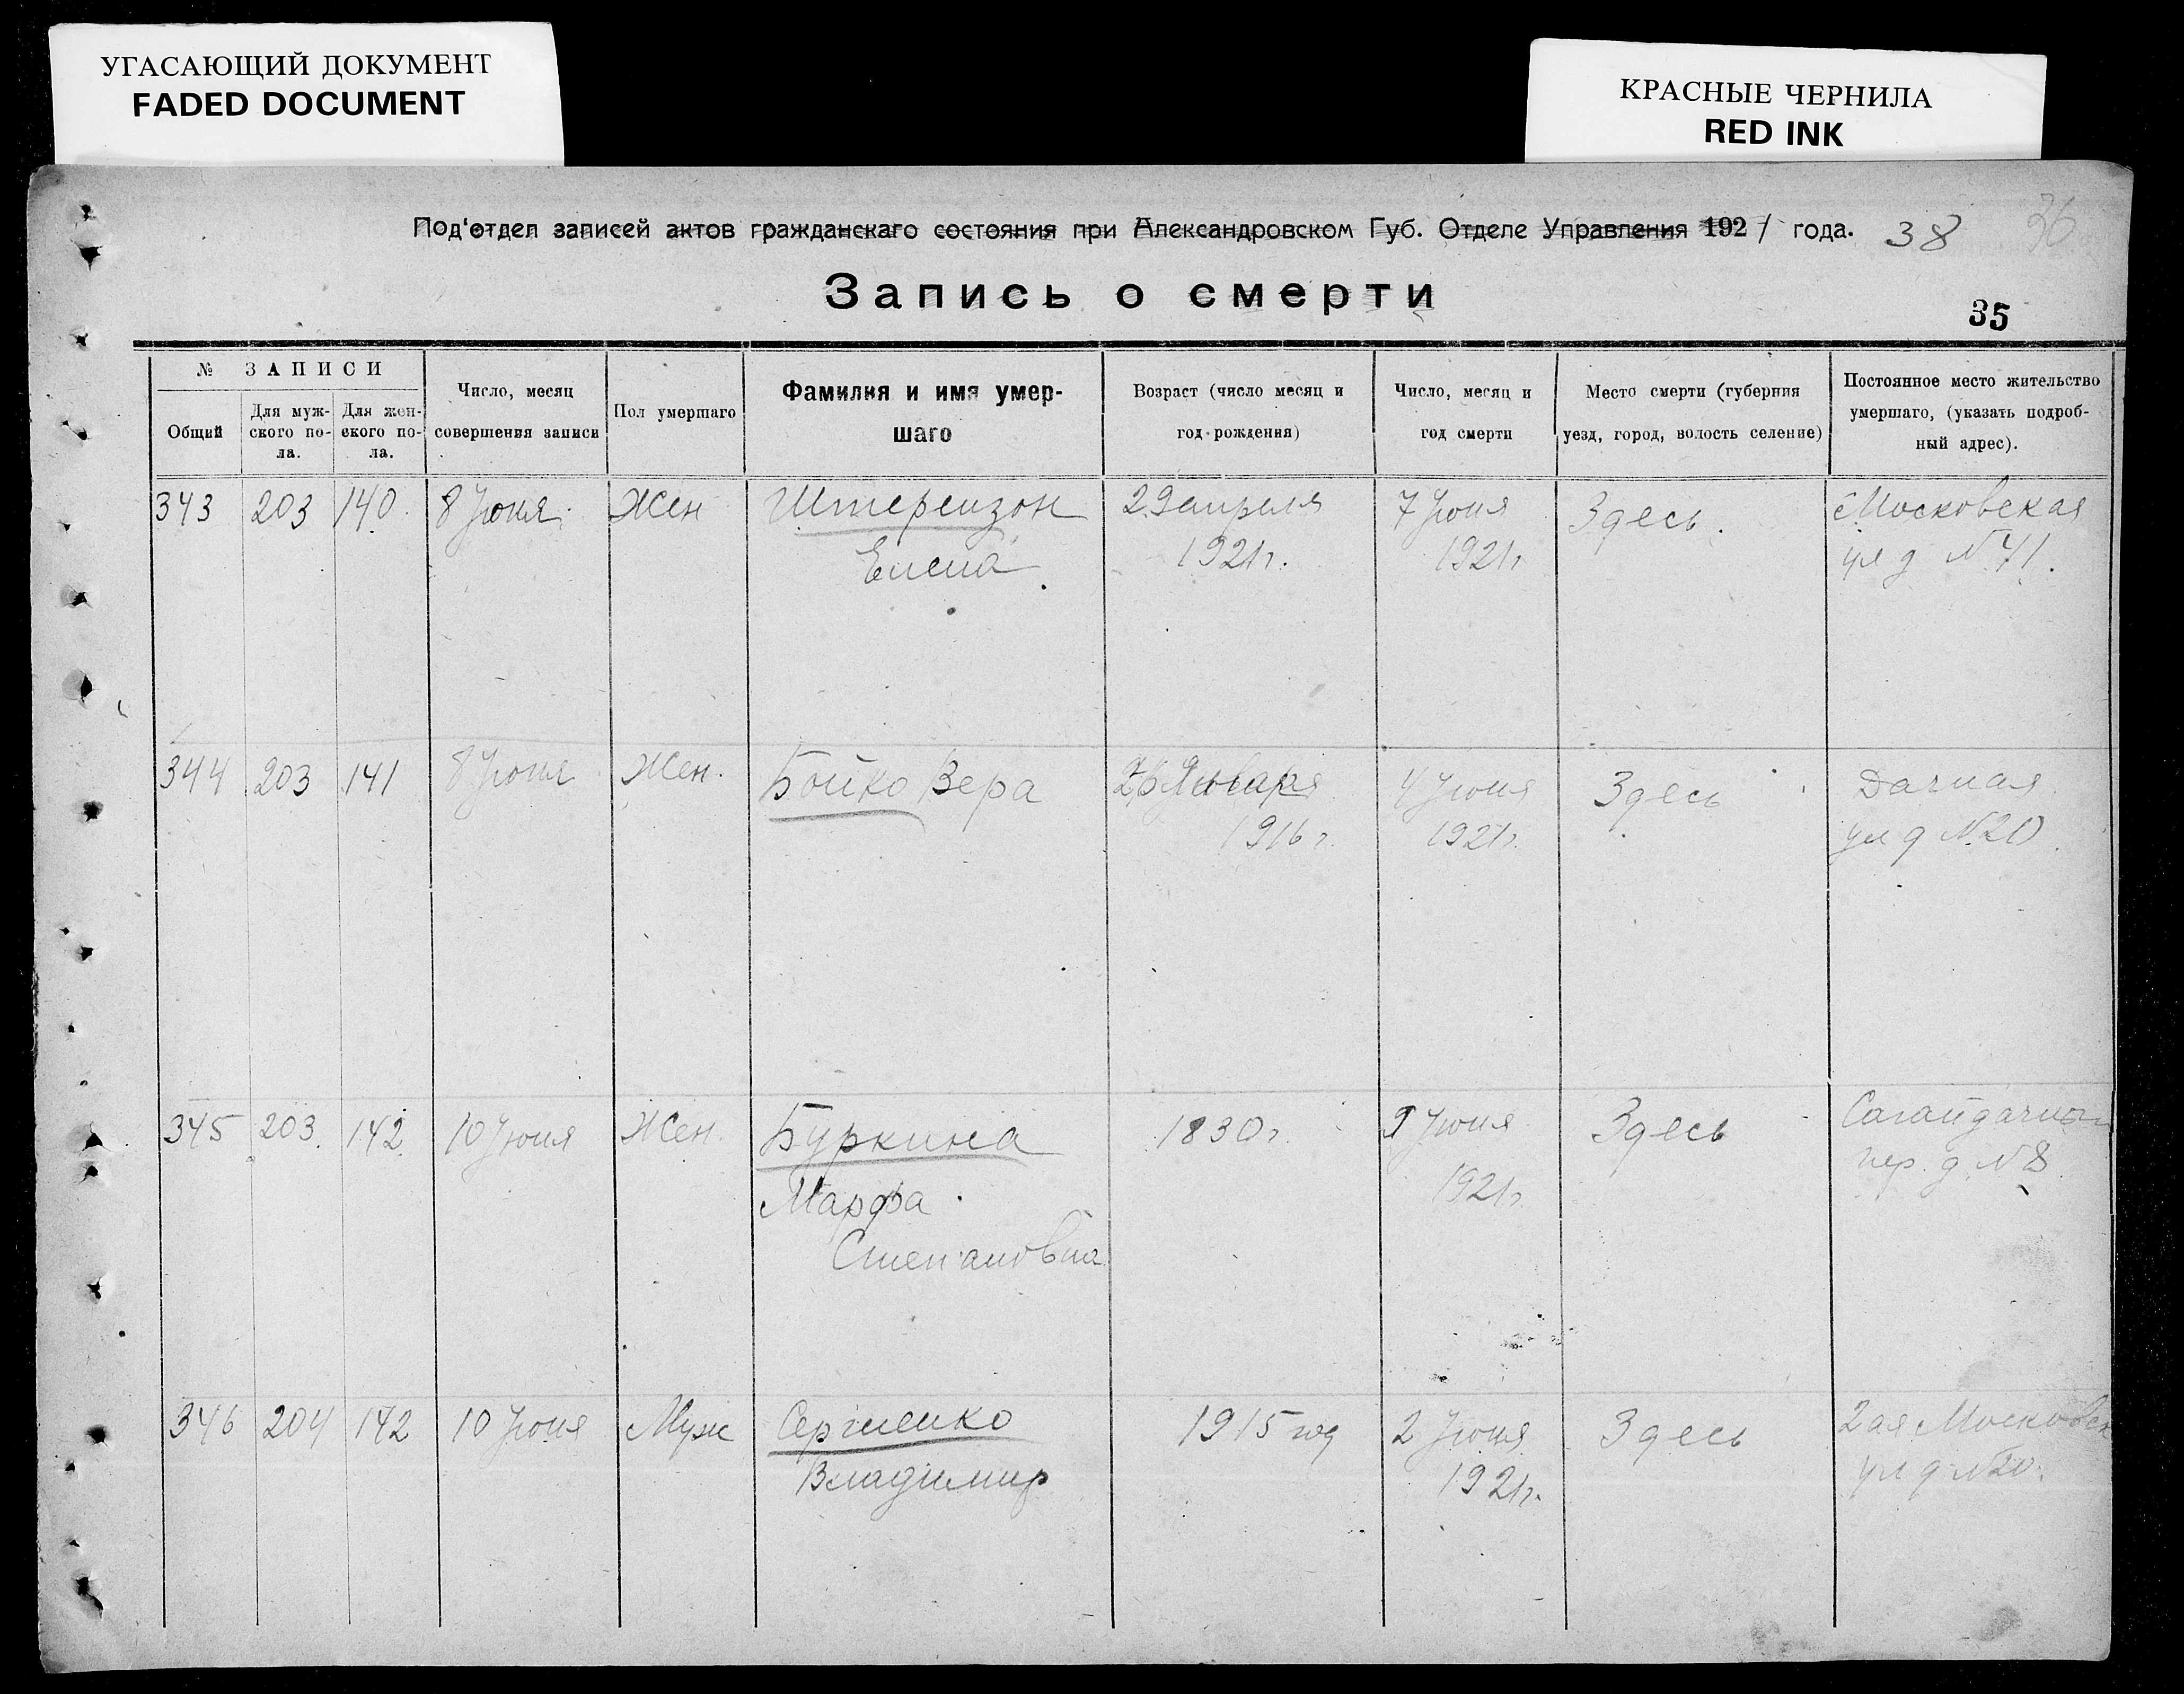 УГАСАЮЩИЙ ДОКУМЕНТ
FADED DOCUMENT
КРАСНЫЕ ЧЕРНИЛА
RED INK
Под'отдел записей актов гражданскаго состояния при Александровском Губ. Отделе Управления 1921 года. 38 36
Запись о смерти
35
№ ЗАПИСИ
Общий
Для муж-
ского по-
ла.
Для жен-
ского по-
ла.
Число, месяц
совершения записи
Пол умершаго
Фамилия и имя умер-
шаго
Возраст (число месяц и
год рождения)
Число, месяц и
год смерти
Место смерти (губерния
уезд, город, волость селение)
Постоянное место жительство
умершаго, (указать подроб-
ный адрес).
343 203 140 8 Июня Жен Штерензон 29 апреля 7 Июня Здесь. Московская
Елена 1921 г. 1921 г. ул д № 41.
344 203 141 8 Июня Жен. Бойко Вера Января 4 Июня Здесь Дачная
1916 г. 1921 г. ул д № 20
345 203 142 10 Июня Жен. Буркина 1830 г. 9 Июня Здесь Сагайдачный
Марфа 1921 г. пер. д № 8
Степановна
346 204 142 10 Июня Муж Сергиенко 1915 год 2 Июня Здесь 2ая Московск
Владимир 1921 г. ул д № 20.